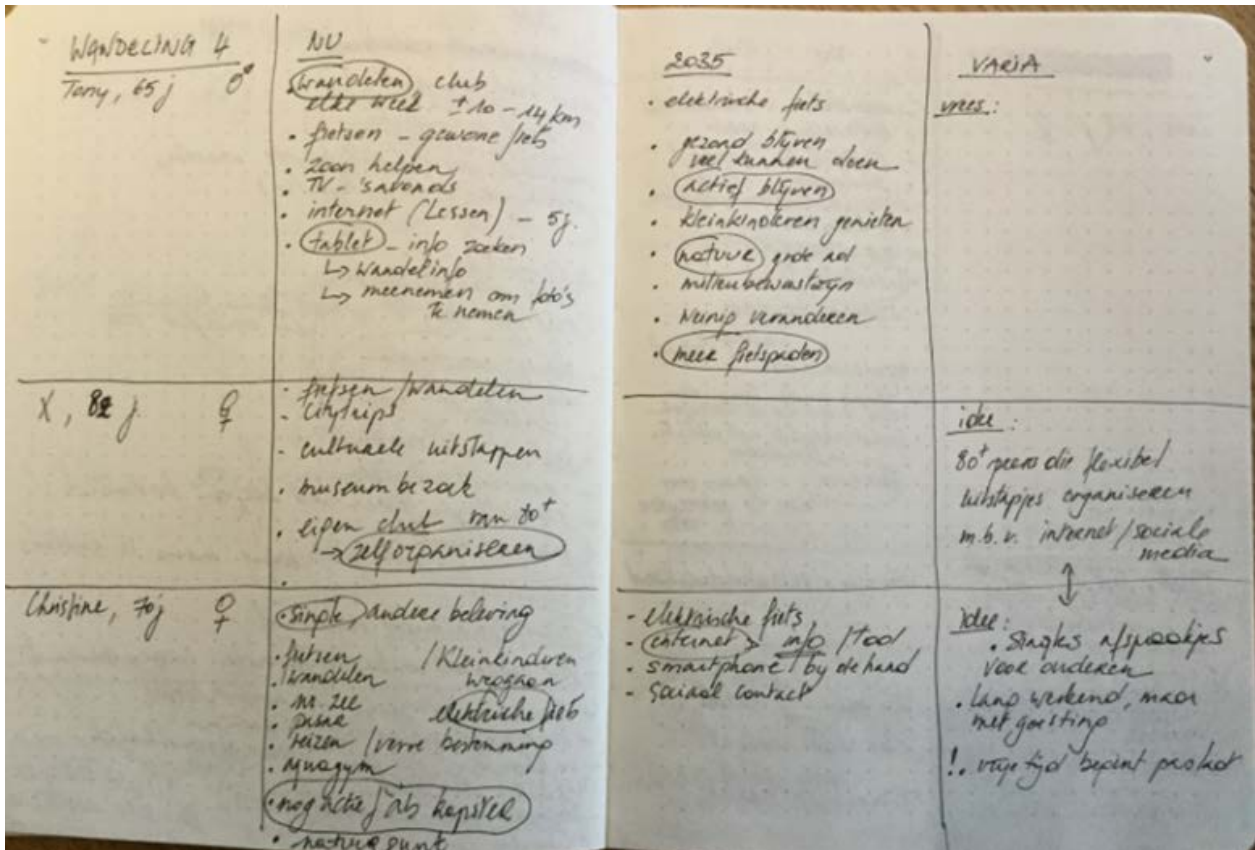 WANDELING 4
Tony, 65 j ♂
NU
wandelen, club
elke week ± 10 - 14 km
• fietsen - gewone fiets
• zoon helpen
• TV - 's avonds
• internet (Lessen) - 5 j.
• tablet - info zoeken
↳ wandelinfo
↳ meenemen om foto's
te nemen
2035
• elektrische fiets
• gezond blijven
veel kunnen doen
• actief blijven
• kleinkinderen genieten
• natuur grote rol
• milieubewustzijn
• weinig veranderen
• meer fietspaden
VARIA
vrees:
X, 82 j ♀
• fietsen / wandelen
• citytrips
• culturele uitstappen
• museumbezoek
• eigen club van 80+
→ zelf organiseren
•
idee:
80+ peers die flexibel
uitstapjes organiseren
m.b.v. internet / sociale
media
↕
Christine, 70j ♀
• single, andere beleving
• fietsen / Kleinkinderen
• wandelen
• nr. zee
elektrische fiets
• reizen / verre bestemming
• aquagym
• nog actief als kapster
• natuurpunt
- elektrische fiets
- internet > info / tool
- smartphone / bij de hand
- sociaal contact
idee:
• Singles afspraakjes
voor ouderen
• Lang werkend, maar
met goesting
!. vrije tijd begint pas laat